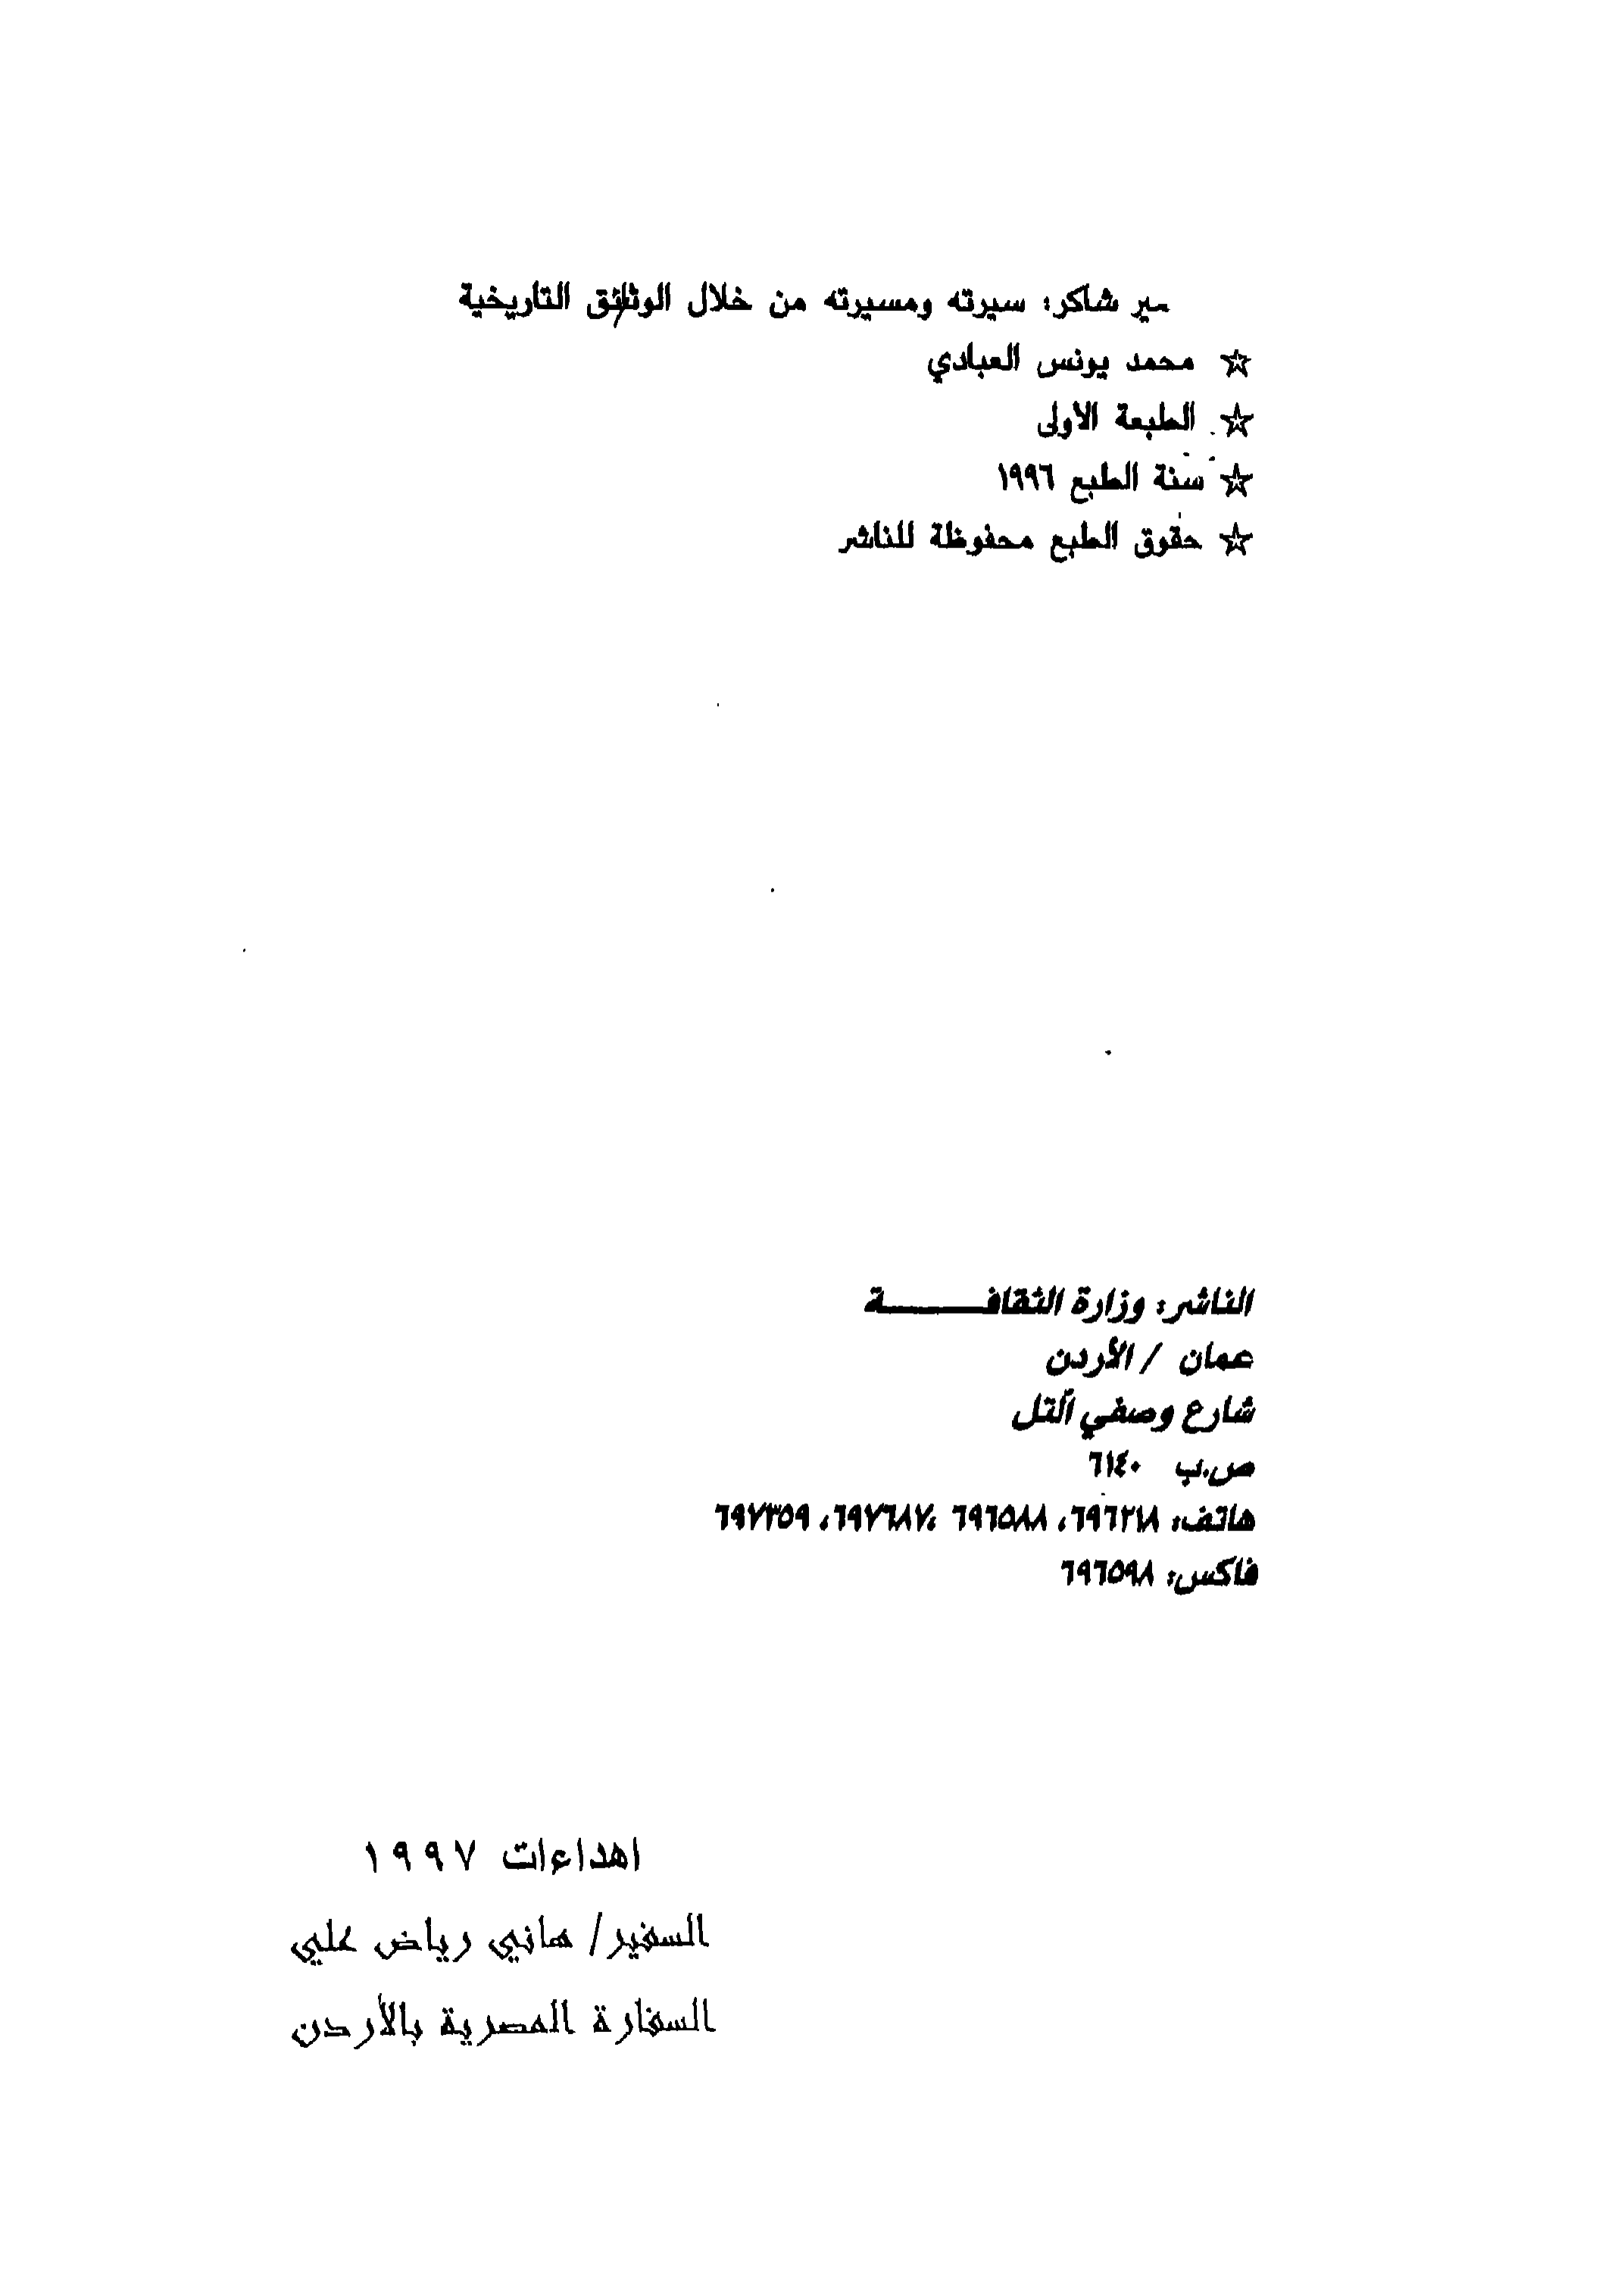 مير شاكر: سيرته ومسيرته من خلال الوثائق التاريخية
☆ محمد يونس العبادي
☆ الطبعة الأولى
☆ سنة الطبع ١٩٩٦
☆ حقوق الطبع محفوظة للناشر
الناشر: وزارة الثقافـــــــة
عمان / الأردن
شارع وصفي التل
ص.ب ٦١٤٠
هاتف: ٦٩٦٢١٨، ٦٩٦٥٨٨، ٦٩٧٦٨٧، ٦٩٧٣٥٩
فاكس: ٦٩٦٥٩٨
اهداءات ١٩٩٧
السفير/ هاني رياض علي
السفارة المصرية بالأردن